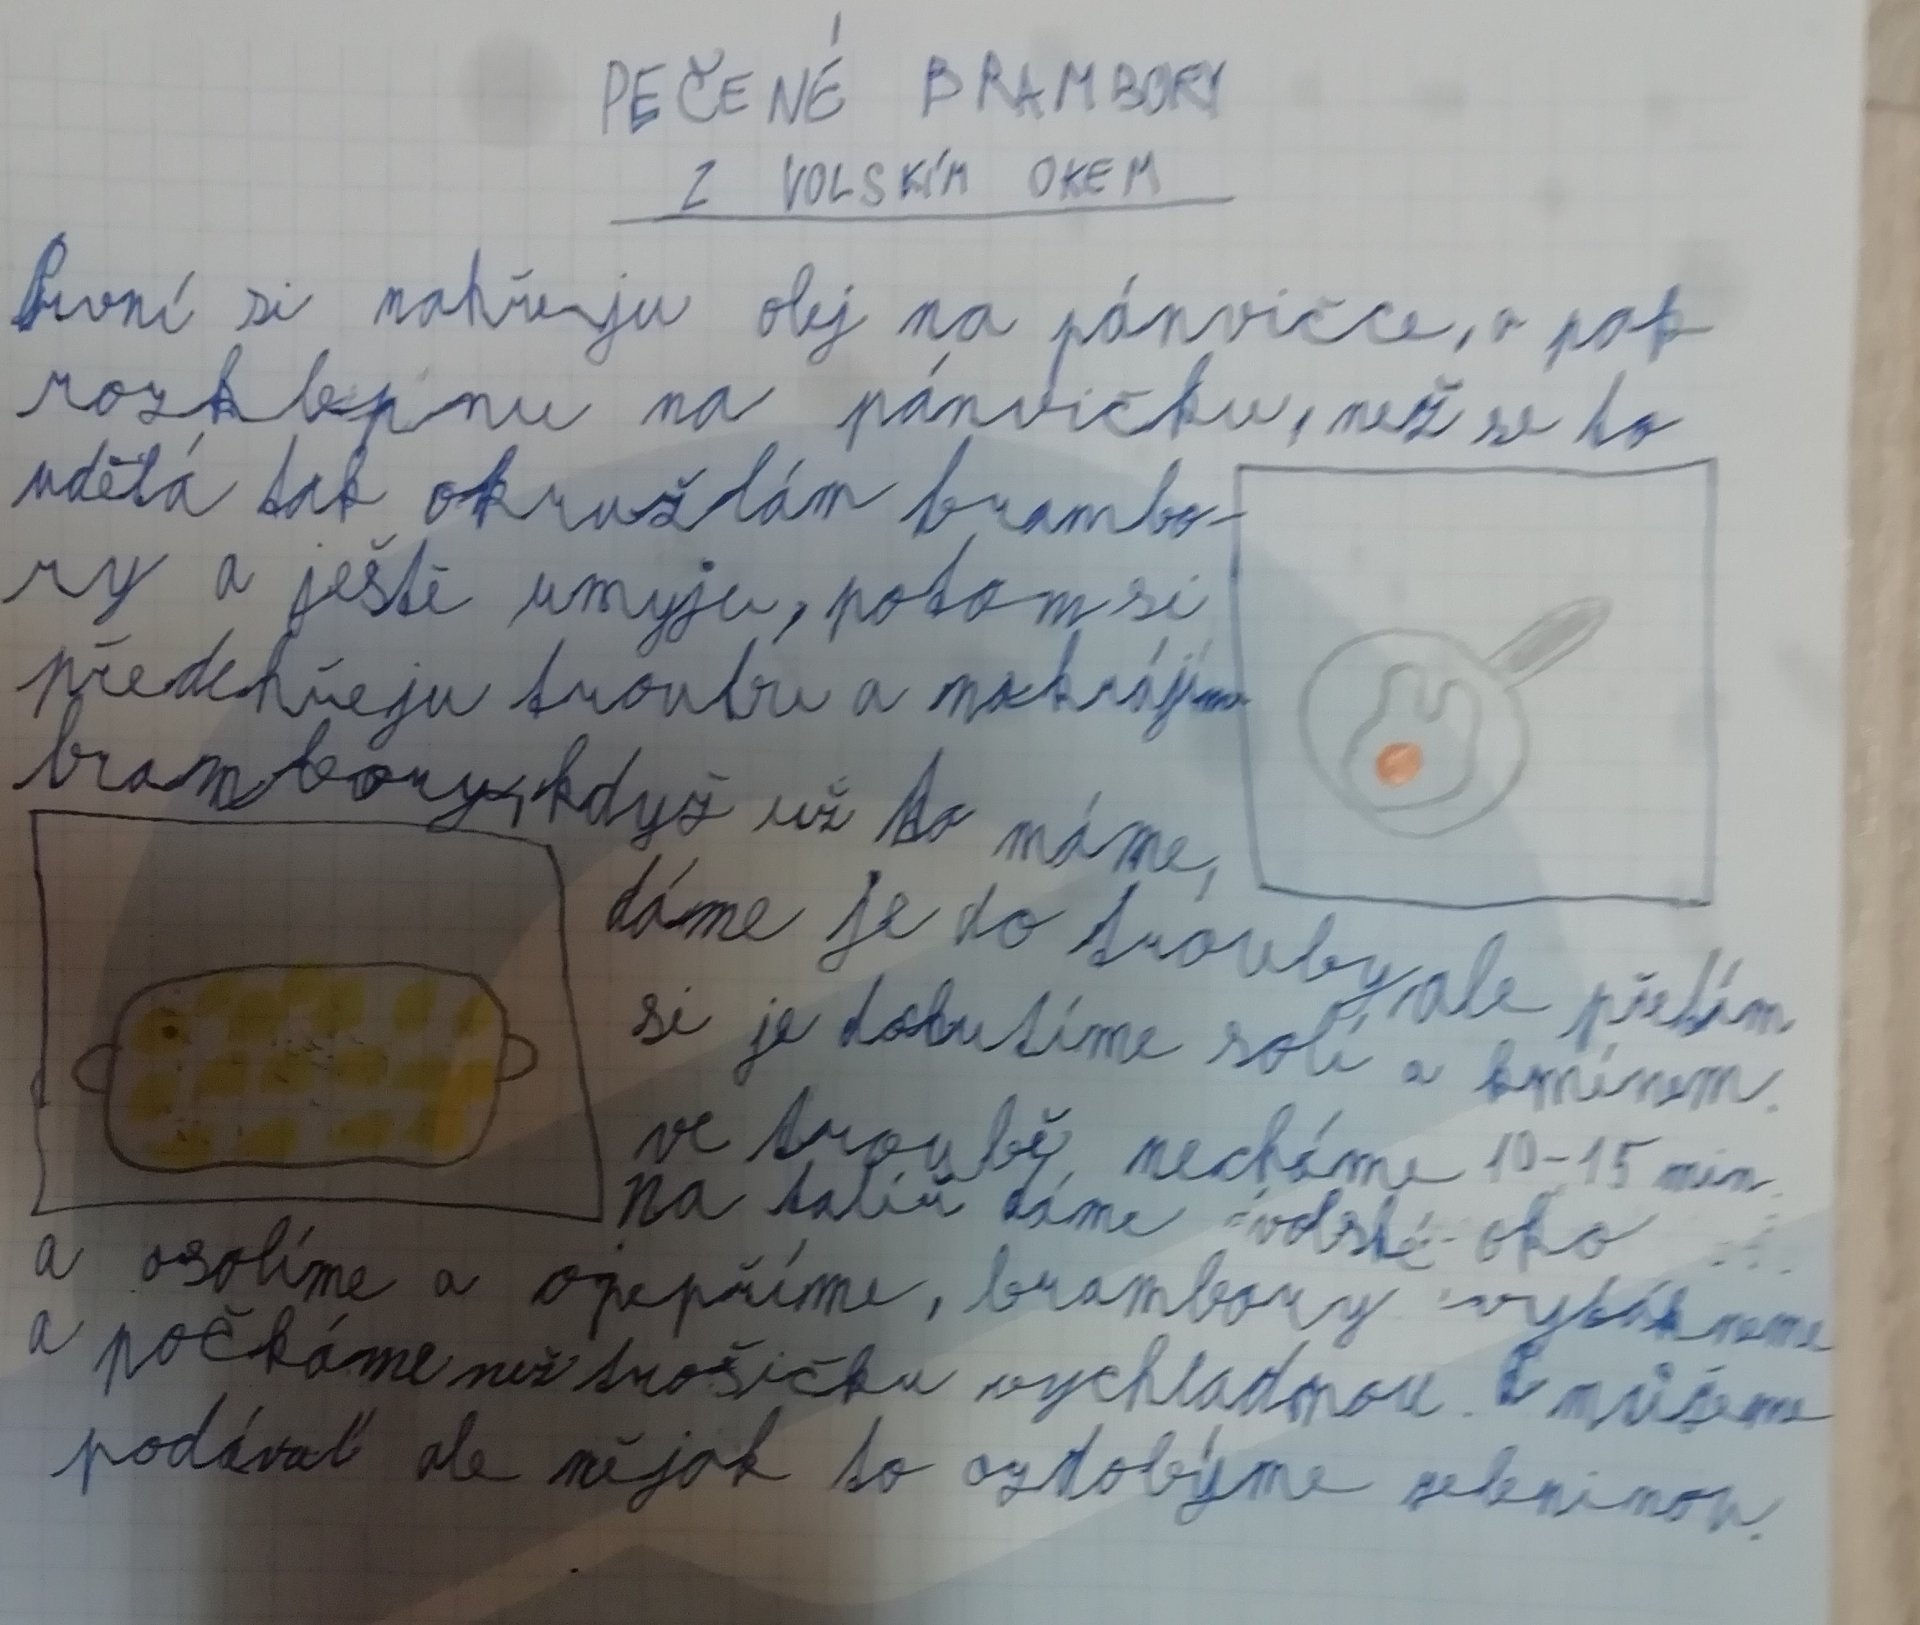 PEČENÉ BRAMBORY
Z VOLSKÍM OKEM
První si nahřeju olej na pánvičce, a pak
rozklepnu na pánvičku, než se to
udělá tak okruždám brambo-
ry a ještě umyju, potom si
předehřeju troubu a nakrájím
brambory, když už to máme,
dáme je do trouby, ale předtím
si je dochutíme solí a kmínem.
ve troubě necháme 10-15 min.
na talíř dáme volské oko
a osolíme a opepříme, brambory vytáhneme
a počkáme než trošičku vychladnou. můžeme
podávat ale nějak to ozdobýme zeleninou.